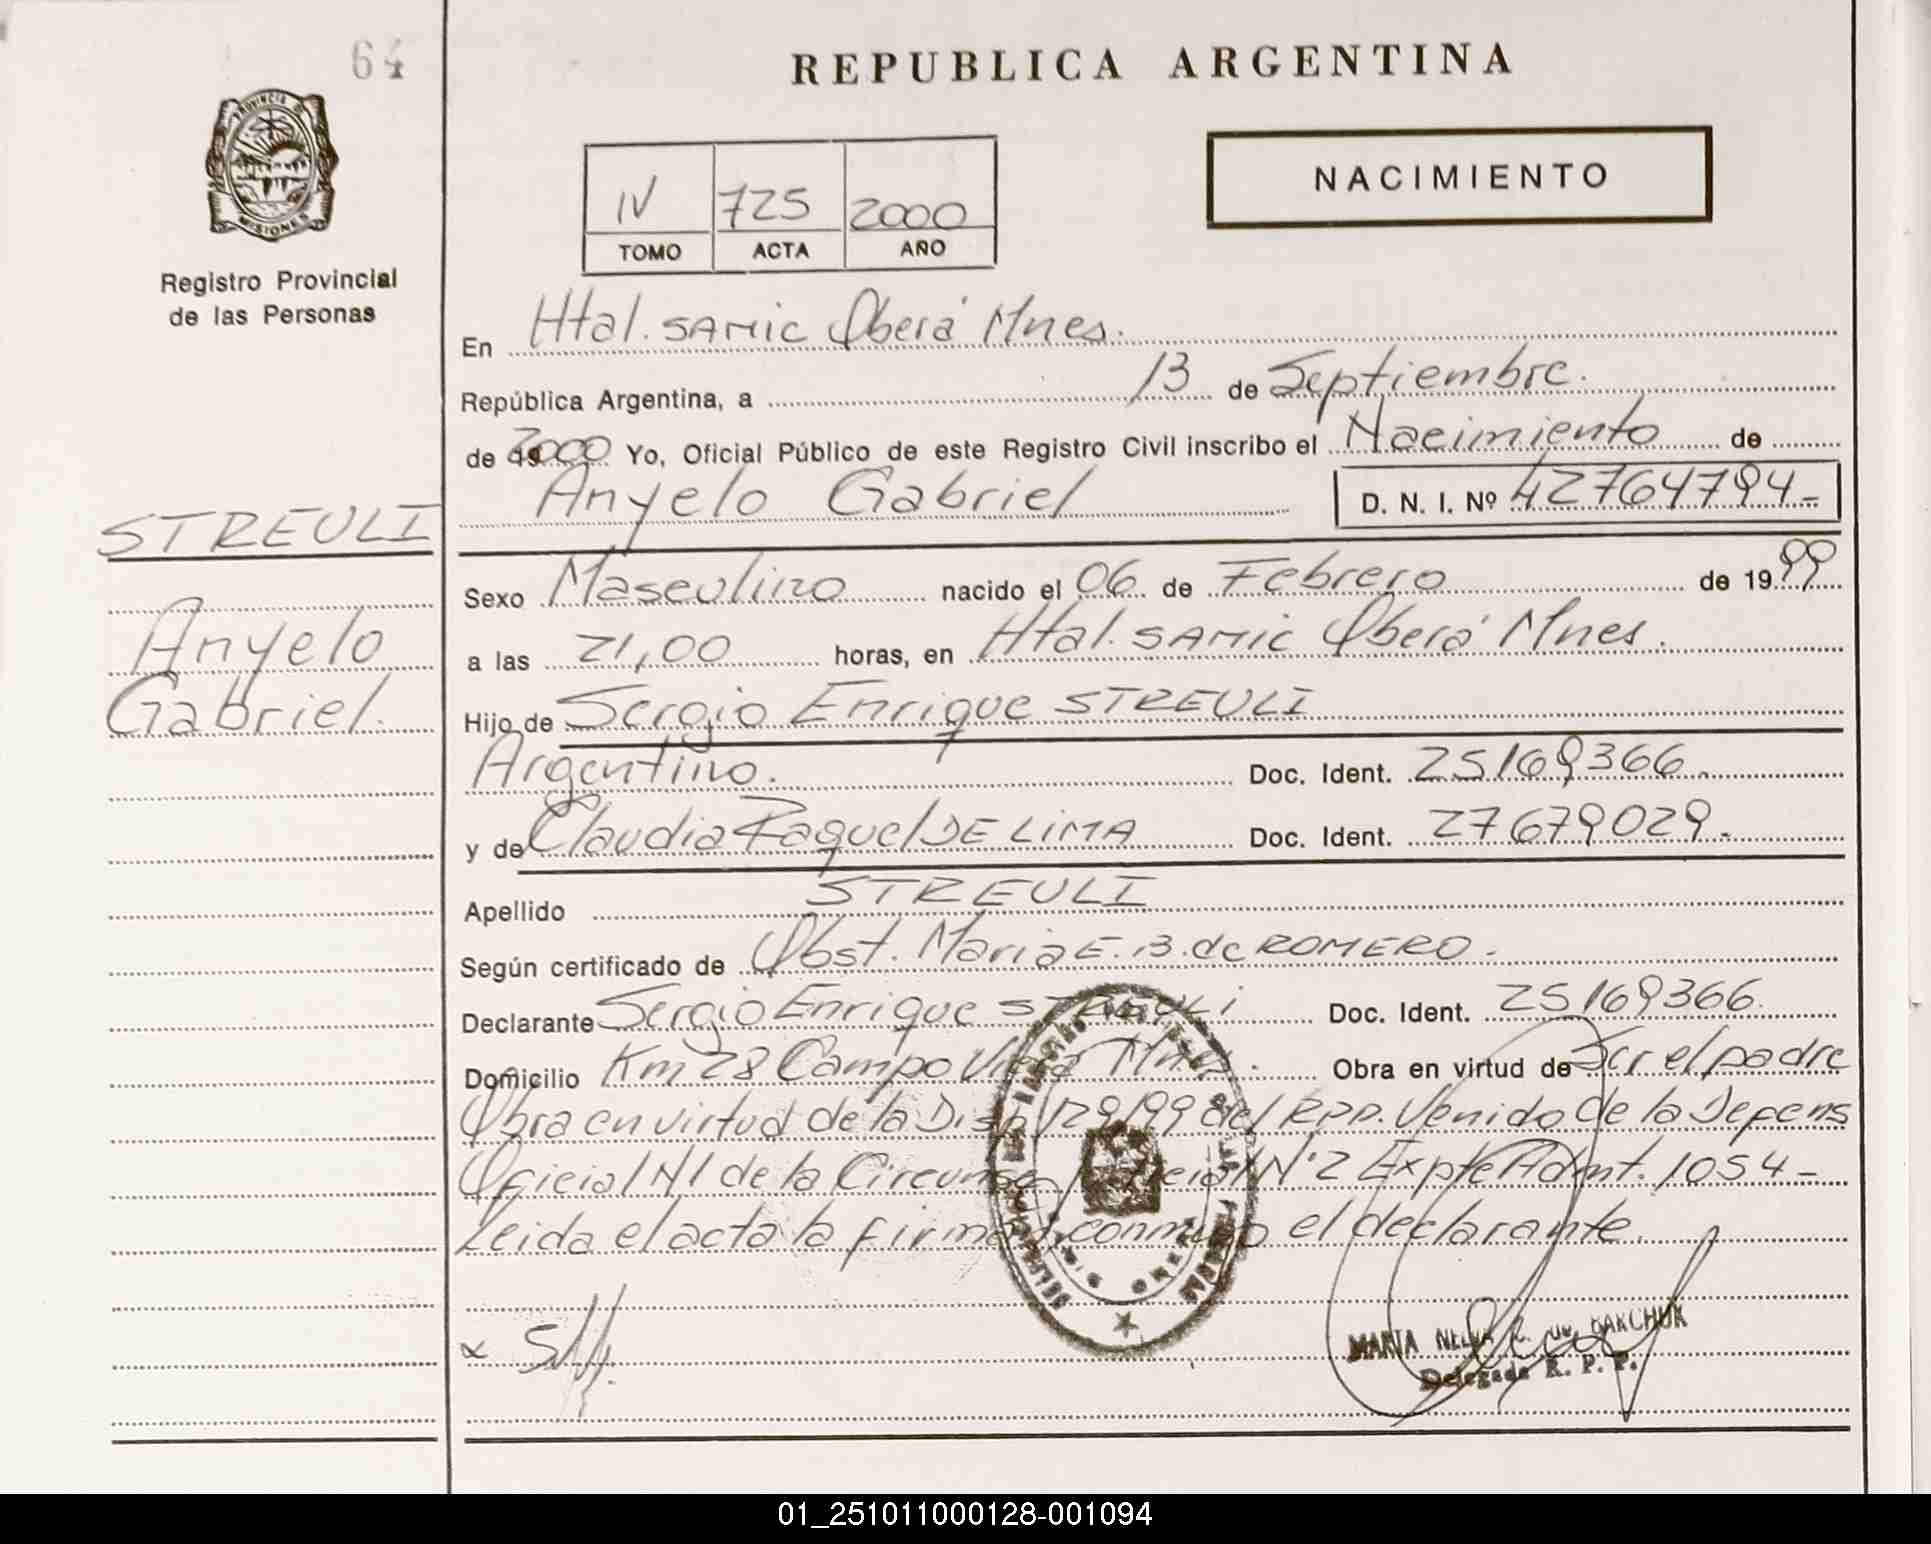 64
REPUBLICA ARGENTINA
PROVINCIA DE
MISIONES
Registro Provincial
de las Personas
IV 725 2000
TOMO ACTA AÑO
NACIMIENTO
En Htal. SAMIC Oberá Mnes.
República Argentina, a 13 de Septiembre.
de 2000 Yo, Oficial Público de este Registro Civil inscribo el Nacimiento de
Anyelo Gabriel D. N. I. Nº 42764794-
STREULI
Anyelo
Gabriel.
Sexo Masculino nacido el 06 de Febrero de 1999
a las 21,00 horas, en Htal. SAMIC Oberá Mnes.
Hijo de Sergio Enrique STREULI
Argentino. Doc. Ident. 25169366.
y de Claudia Raquel DE LIMA Doc. Ident. 27679029.
Apellido STREULI
Según certificado de Obst. Maria E. B. de ROMERO.
Declarante Sergio Enrique STREULI Doc. Ident. 25169366.
Domicilio Km 28 Campo Viera Mnes. Obra en virtud de Ser el padre
Obra en virtud de la Disp. 129/99 del RPP. Venido de la Defens
Oficial N1 de la Circunsc N°2 Expte Admt. 1054-
Leida el acta la firma conmigo el declarante.
MARIA NELIDA de
Delegada R. P. P.
01_251011000128-001094